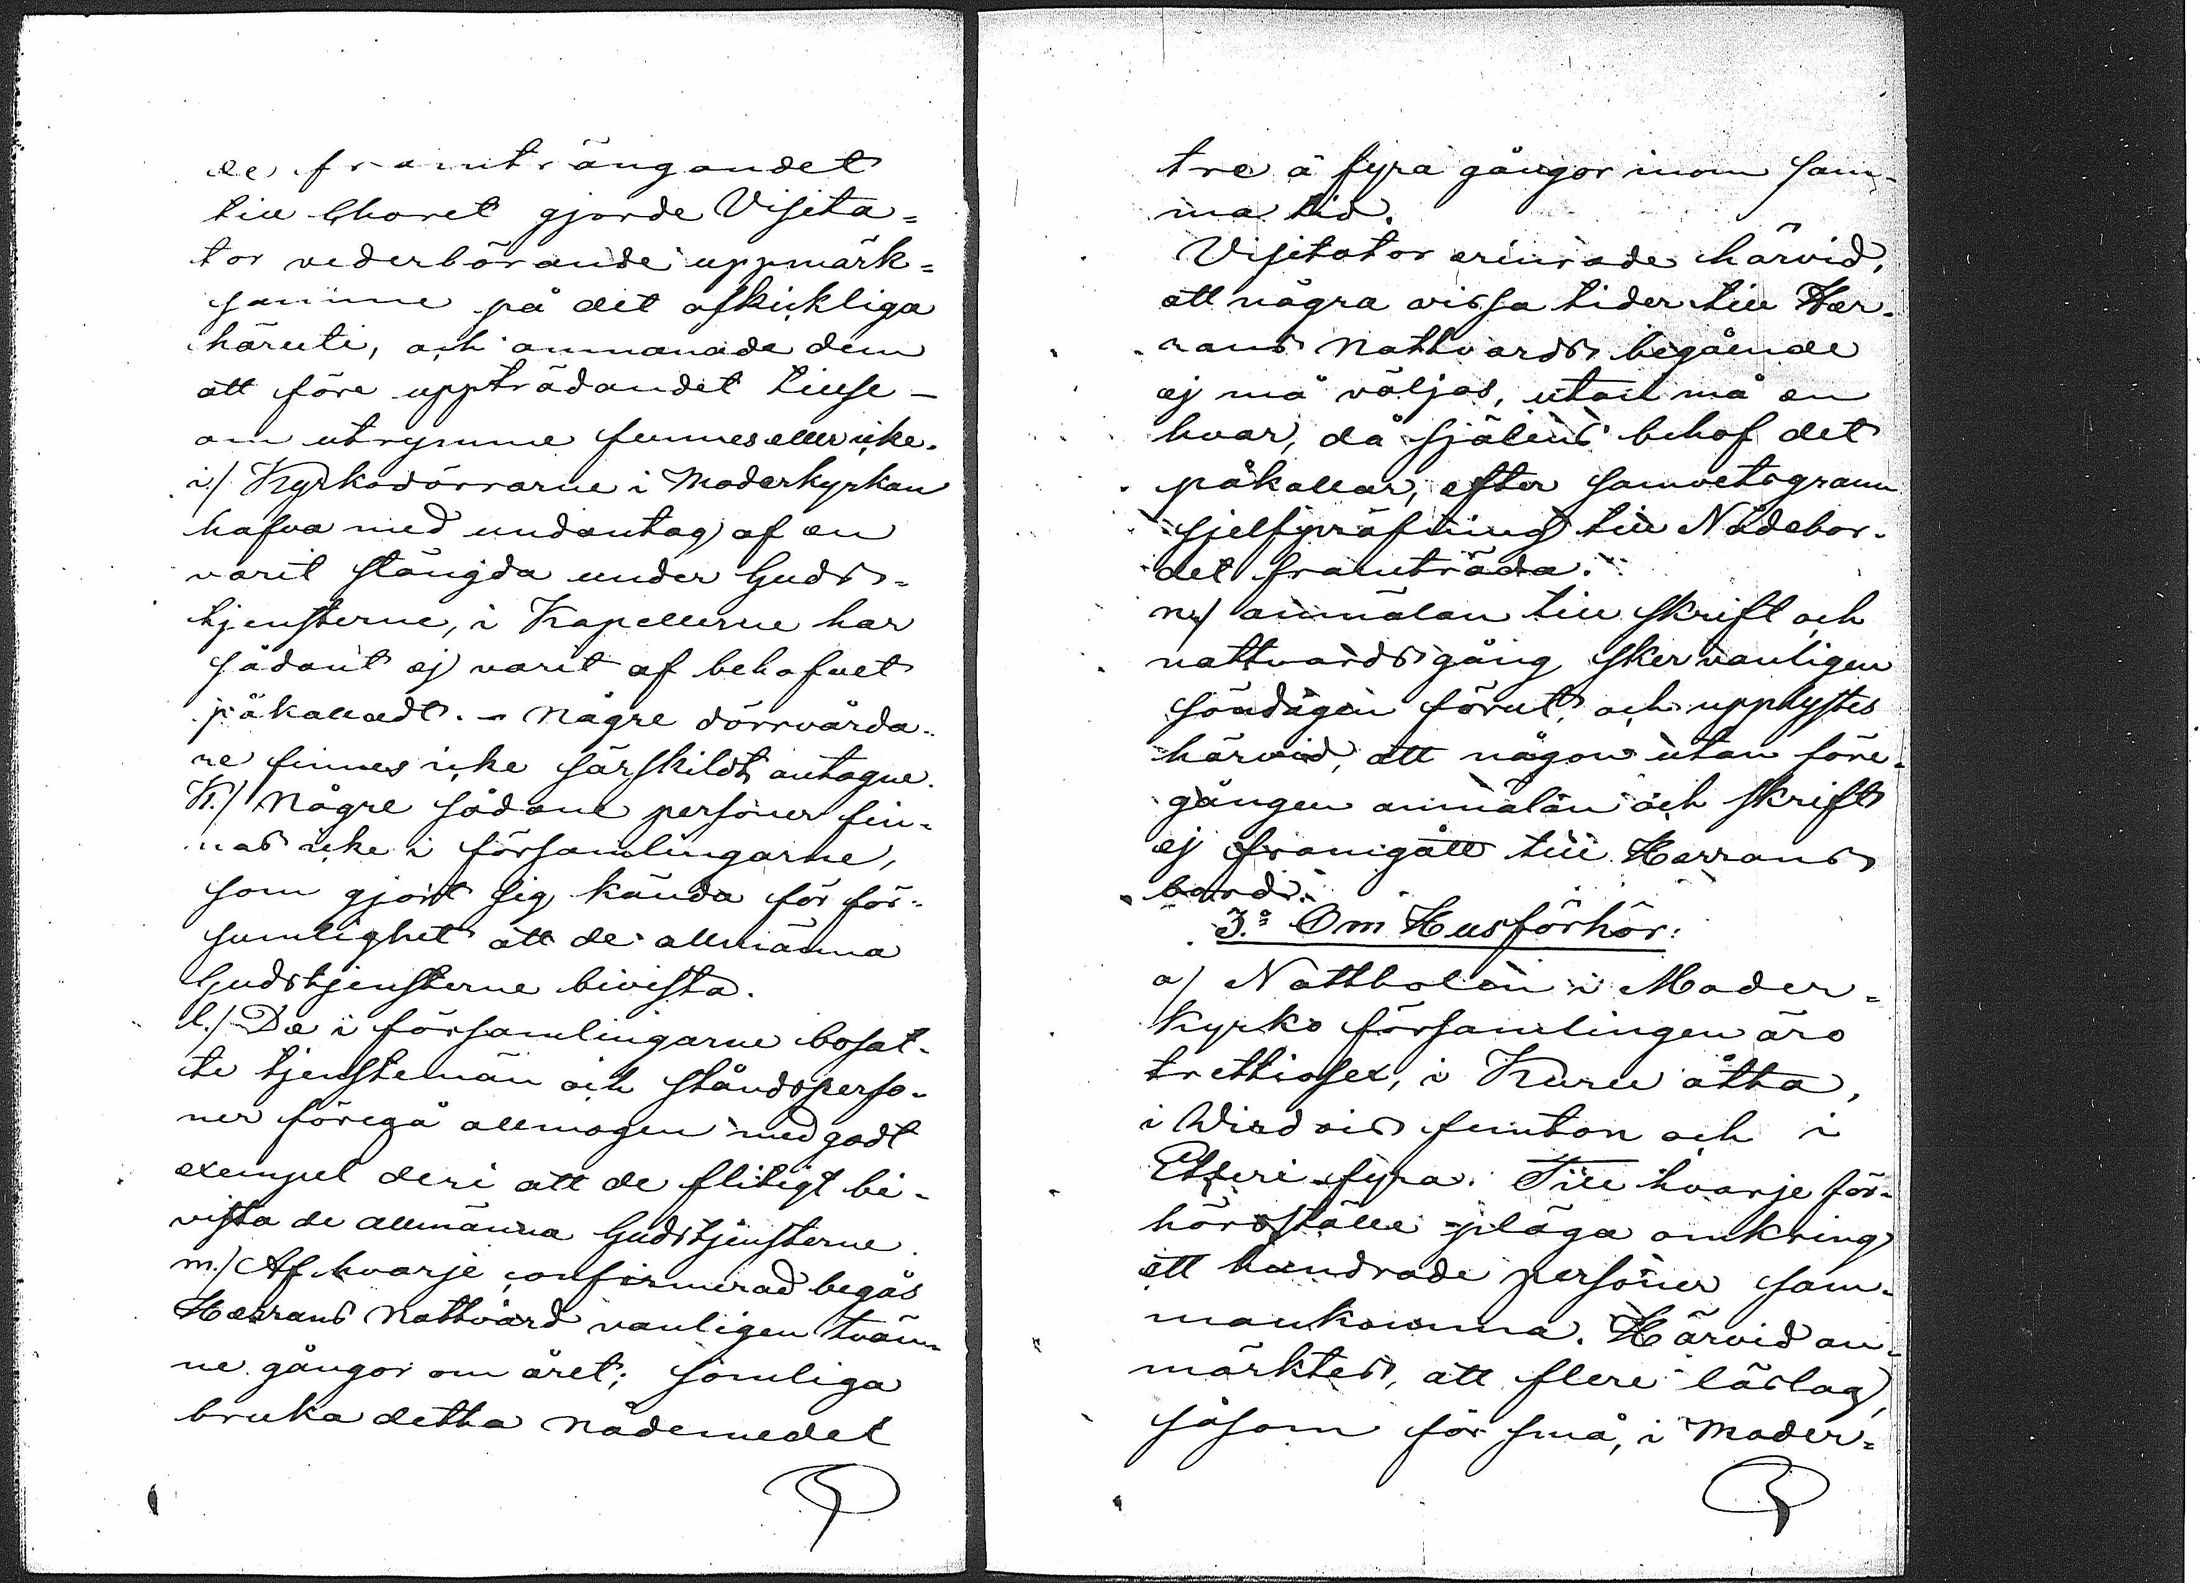 de framträngandet
till Choret gjorde Visita=
tor vederbörande uppmärk=
samme på det oskickliga
häruti, och anmanade dem
att före uppträdandet tillse –
om utrymme funnes eller icke.
i.) Kyrkodörrarne i Moderkyrkan
hafva med undantag af en
varit stängda under Guds-
tjensterne, i Kapellerne har
sådant ej varit af behofvet
påkalladt. – Några dörrvårda-
re finnes icke särskildt antagne.
K.) Någre sådane personer fin-
nas icke i församlingarne,
som gjort sig kända för för-
sumlighet att de allmänna
Gudstjensterne bivista.
l.) De i församlingarne bosat-
te tjenstemän och ståndsperso-
ner föregå allmogen med godt
exempel deri att de flitigt bi-
vista de allmänna Gudstjensterne.
m.) Af hvarje confirmerad begås
Herrans Nattvard vanligen tvän-
ne gångor om året; somliga
bruka detta nådemedel
tre á fyra gångor inom sam-
ma tid.
Visitator erinrade härvid,
att några vissa tider till Her-
rans Nattvards begående
ej må väljas, utan må en
hvar, då själens behof det
påkallar, efter samvetsgrann
sjelfpröfning till Nådebor-
det framträda.
n.) anmälan till skrift och
nattvardsgång sker vanligen
söndagen förut, och upplystes
härvid, att någon utan före-
gången anmälan och skrift
ej framgått till Herrans
bord.
3:o Om Husförhör:
a) Nattbolen i Moder=
Kyrko församlingen äro
trettiosex, i Kuru åtta,
i Wirdois femton och i
Etseri fyra. Till hvarje för-
hörsställe pläga omkring
ett hundrade personer sam-
mankomma. Härvid an-
märktes, att flere läslag,
såsom för små, i Moder=